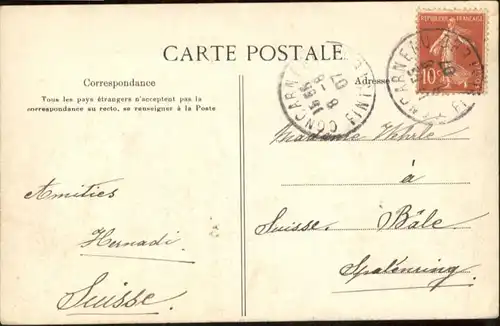 CARTE POSTALE
Correspondance
Tous les pays étrangers n'acceptent pas la
correspondance au recto, se renseigner à la Poste
Amitiés
Suisse.
Adresse
REPUBLIQUE FRANÇAISE
10c
CONCARNEAU
FINIST
Madame
à
Suisse. Bâle.
Spalenring.